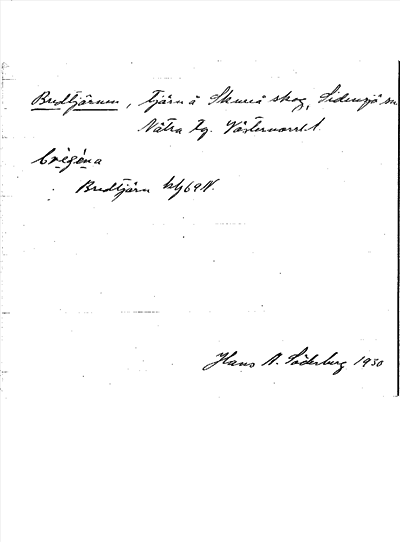 Bredtjärnen, tjärn å Skureå skog, Sidensjö sn
Nätra tg. Västernorrl. l.
Bredtjärn
Hans A. Söderberg 1930